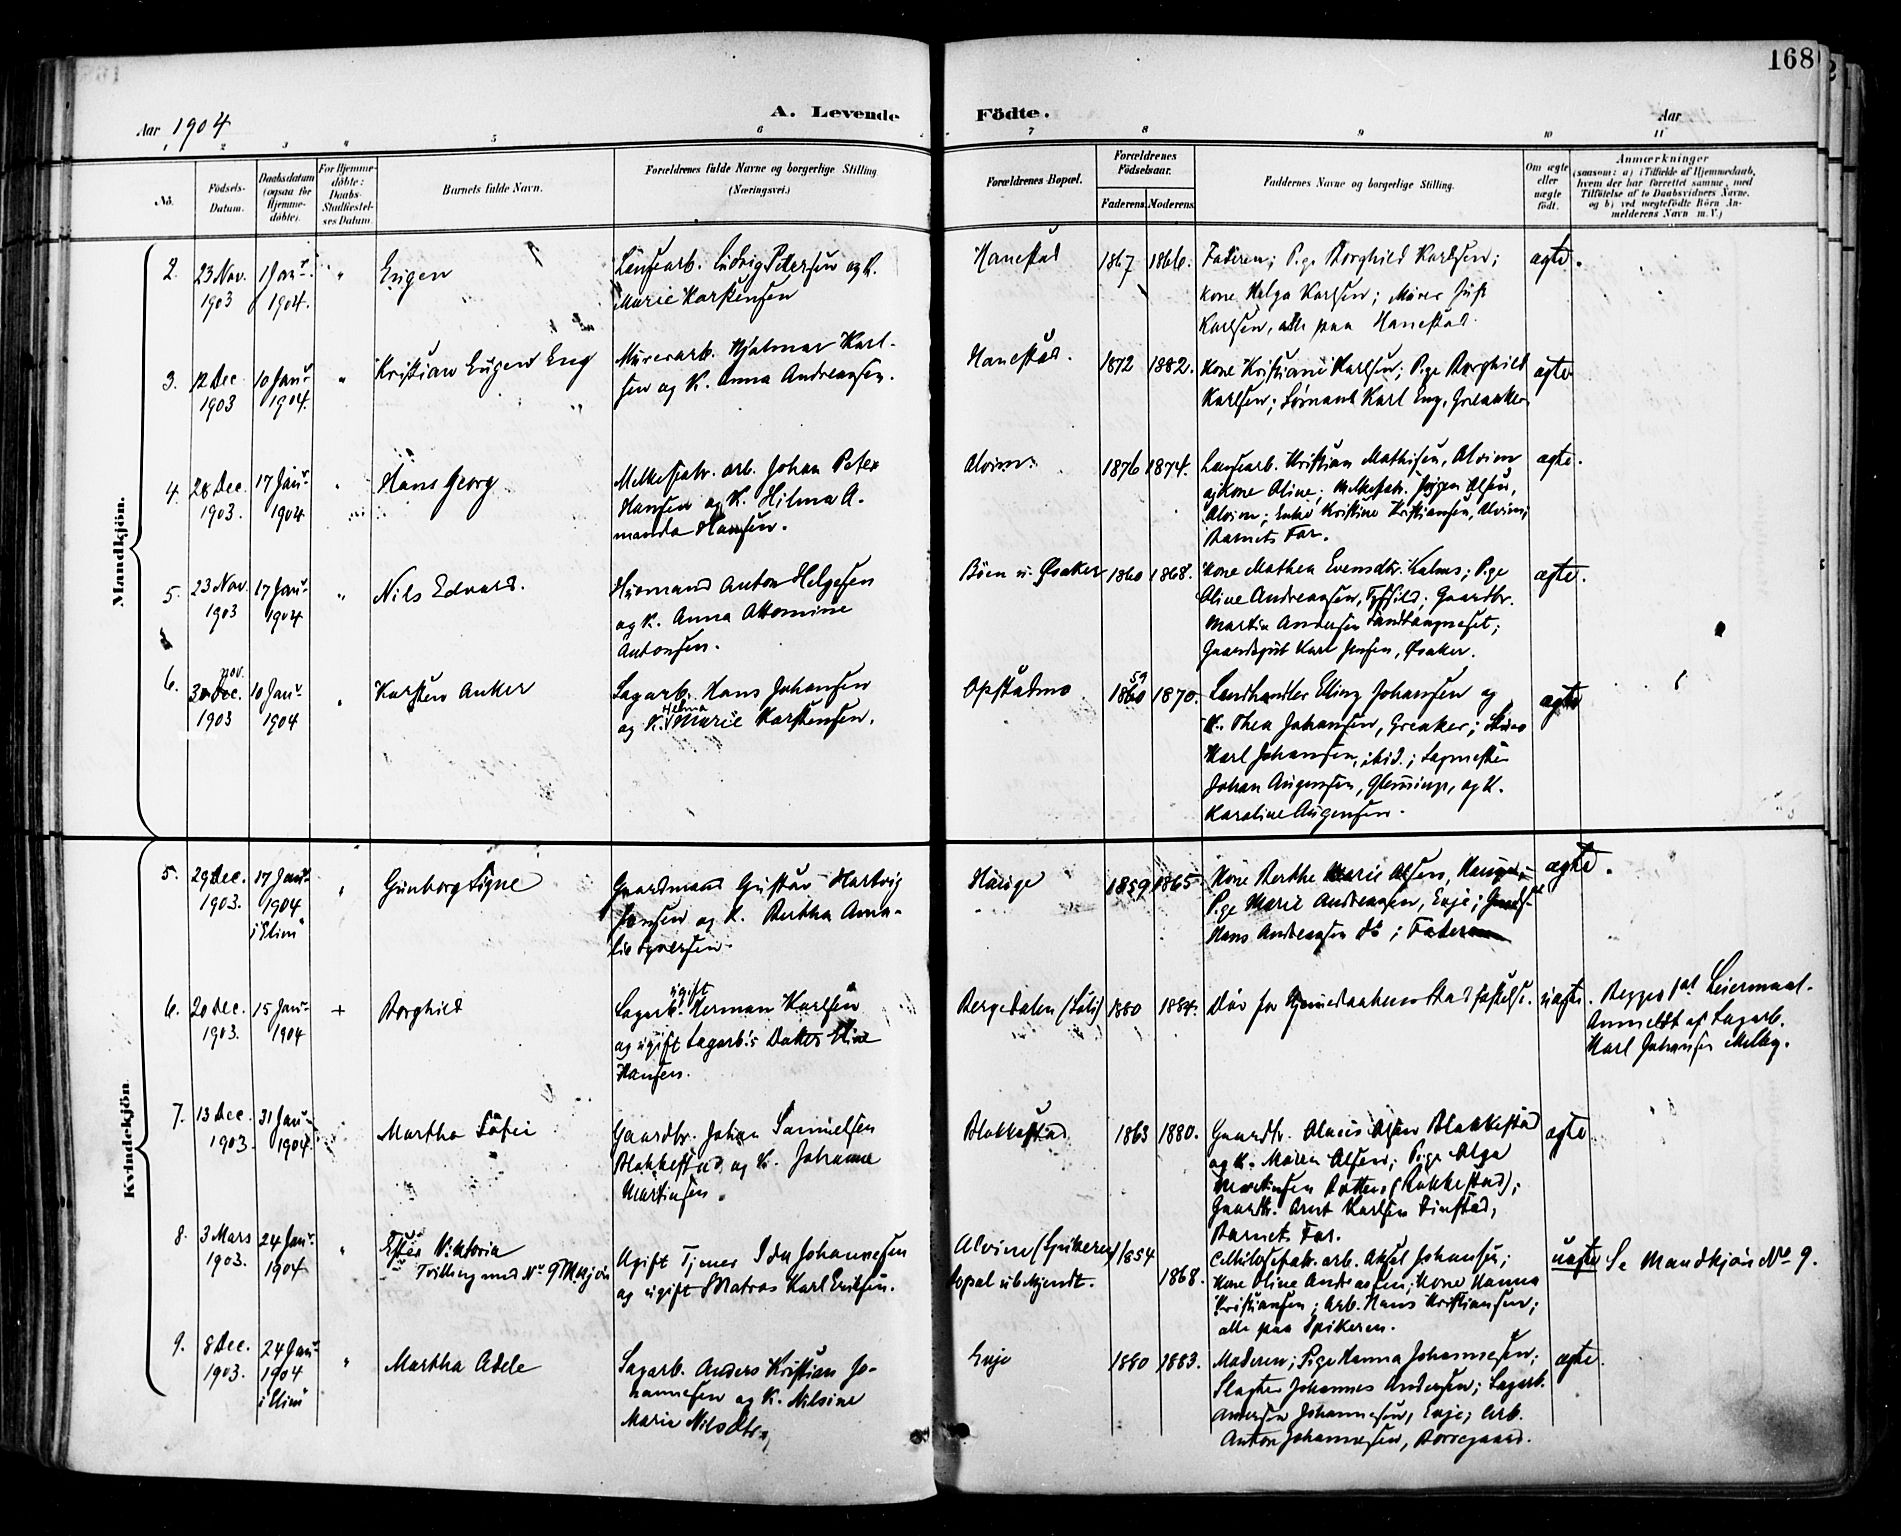 168
Aar 1904
A. Levende Födte.
Aar
1 2 3 4 5 6 7 8 9 10 11
No.
Födsels-Datum.
Daabsdatum (ogsaa for Hjemmedöbte).
For Hjemmedöbte: Daabs-Stadfæstelses Datum.
Barnets fulde Navn.
Forældrenes fulde Navne og borgerlige Stilling (Næringsvei.)
Forældrenes Bopæl.
Forældrenes Födselsaar.
Faderens. Moderens.
Faddernes Navne og borgerlige Stilling.
Om ægte eller uægte födt.
Anmærkninger
(saasom: a) i Tilfælde af Hjemmedaab, hvem der har forrettet samme, med Tilföielse af to Daabsvidners Navne, og b) ved uægtefödte Börn Anmelderens Navn m. V.)
Mandkjön.
2. 23 Nov. 1903
1 Janr. 1904.
"
Eugen
Lensearb. Ludvig Petersen og K.
Marie Karstensen
Hanestad
1867 1866.
Faderen; Pige Borghild Karlsen;
Kone Helga Karlsen; Murer
Karlsen, alle paa Hanestad.
ægte.
3. 12 Dec 1903
10 Janr 1904.
"
Kristian Eugen Eng
Murerarb. Hjalmar Karl-
sen og K. Anna Andreassen.
Hanestad.
1872 1882.
Kone Kristiane Karlsen; Pige Borghild
Karlsen; Karl Eng, Greaaker
ægte
4. 28 Dec 1903.
17 Janr 1904
"
Hans Georg
Melkefabr. arb. Johan Peter
Hansen og K. Hilma A-
manda Hansen.
Alvim.
1876 1874.
Lensearb. Kristian Mathisen, Alvim
og Kone Oline; Melkefabr. Jørgen Olsen,
Alvim; Enke Kristine Kristiansen, Alvim;
Barnets Far.
ægte.
5. 23 Nov. 1903
17 Janr 1904
"
Nils Edvard.
Husmand Anton Helgesen
og K. Anna
Antonsen.
Böen u. Øsaker
1860 1868.
Kone Mathea Evensdtr. Kalnes; Pige
Oline Andreassen, Gaardbr.
Martin Andersen
Karl Jensen, Øsaker.
ægte.
6. 30 Nov. 1903
10 Janr 1904
"
Karsten Anker
Sagarb. Hans Johansen
og K. Helma Marie Karstensen.
Opstadmo
1860 59 1870.
Landhandler Elling Johansen og
K. Thea Johansen, Greaker;
Karl Johansen, ibid.; Sagmester
Johan Augensen, Glemminge, og K.
Karoline Augensen.
ægte
Kvindekjön
5. 29 Dec. 1903.
17 Janr 1904
i "Elim"
"
Gunborg Signe
Gaardmand Gustav Hartvig
Jensen og K. Bertha Ama-
lie Syversen.
Hauge
1859 1865
Kone Berthe Marie Olsen, Hauge;
Pige Marie Andreasen, Evje;
Hans Andreassen do; Faderen
ægte.
6. 20 Dec. 1903.
15 Janr 1904
+
Borghild
Sagarb. ugift Herman Karlsen
og ugift Sagarb's Datter Eline
Hansen.
Bergedalen (Soli)
1880 1884.
Död før Hjemmedaabens Stadfæstelse.
uægte.
Begges 1st Leiermaal.
Anmeldt af Sagarb.
Karl Johansen Melby.
7. 13 Dec. 1903.
31 Janr 1904.
"
Martha Sofie
Gaardbr. Johan Samuelsen
Blakkestad og K. Johanne
Martinsen.
Blakkestad
1863 1880.
Gaardbr. Olsen Blakkestad
og K. Maren Olsen; Pige Olga
Martinsen (Rakkestad);
Gaardbr. Arnt Karlsen
Barnets Far.
ægte
8. 3 Mars 1903.
24 Janr. 1904
"
Ester Viktoria
Tvilling med No 9 Mkjön
Ugift Tjener Ida Johannesen
og ugift Matros Karl Eriksen.
Alvim (Spikeren)
Bopæl ubekjendt.
1854
1868.
Cellulosefabr. arb. Aksel Johansen;
Kone Oline Andreassen; Kone Hanna
Kristiansen; Arb. Hans Kristiansen;
alle paa Spikeren.
uægte
Se Mandkjön No 9.
9. 8 Dec. 1903.
24 Janr 1904
i "Elim"
"
Martha Adele
Sagarb. Anders Kristian Jo-
hannesen og K. Nilsine
Marie Nilsdtr.
Evje
1880 1883.
Moderen; Pige Hanna Johannesen;
Slagter Johannes Andersen; Sagarb.
Andersen Johannesen, Evje; Arb.
Anton Johannesen, Borregaard.
ægte.